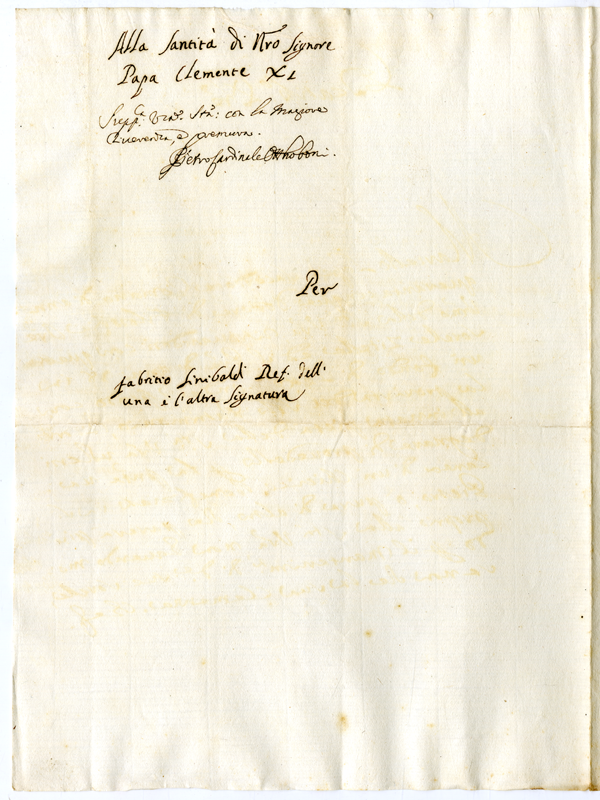 Alla Santità di Nro Signore
Papa Clemente XI
Suppca Vra Stà: con la maggiore
Riverenza, e premura.
Pietro Cardinale Otthoboni.
Per
Fabritio Sinibaldi Ref. dell'
una e l'altra Signatura